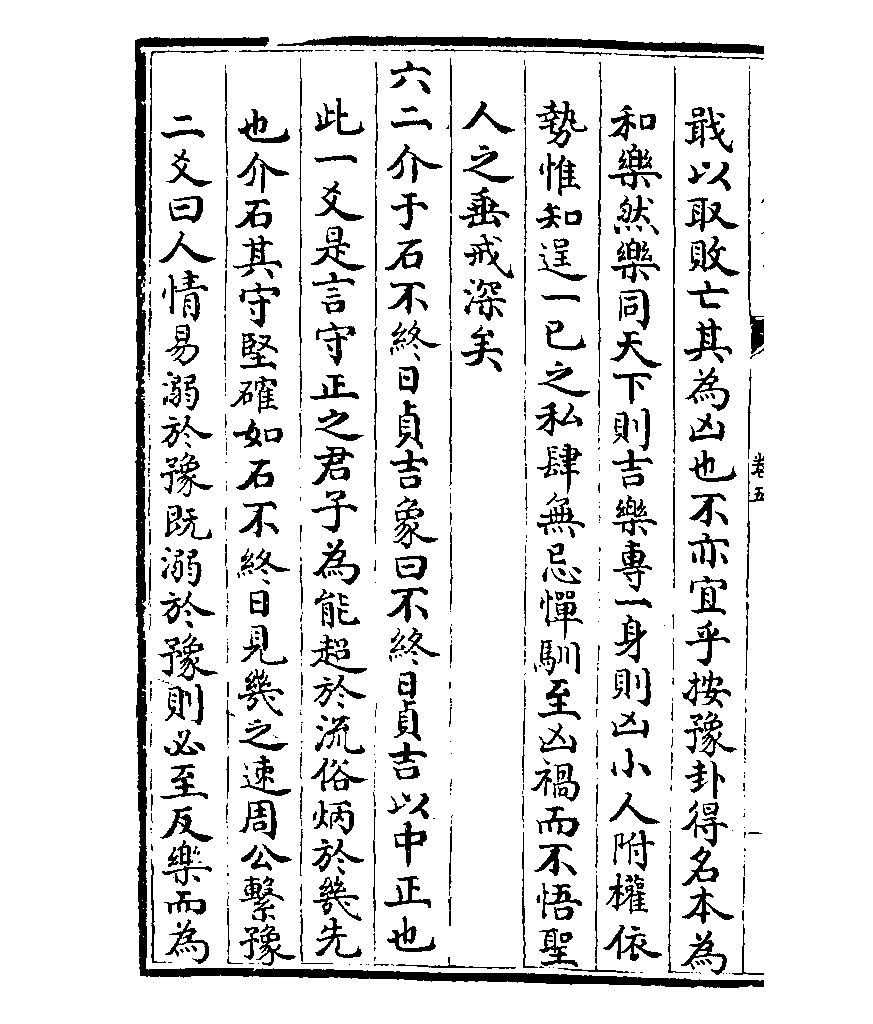 戢以取敗亡其為凶也不亦宜乎按豫卦得名本為
和樂然樂同天下則吉樂專一身則凶小人附權依
勢惟知逞一已之私肆無忌憚馴至凶禍而不悟聖
人之垂戒深矣
六二介于石不終日貞吉象曰不終日貞吉以中正也
此一爻是言守正之君子為能超於流俗炳於㡬先
也介石其守堅確如石不終日見㡬之速周公繫豫
二爻曰人情易溺於豫既溺於豫則必至反樂而為
卷五